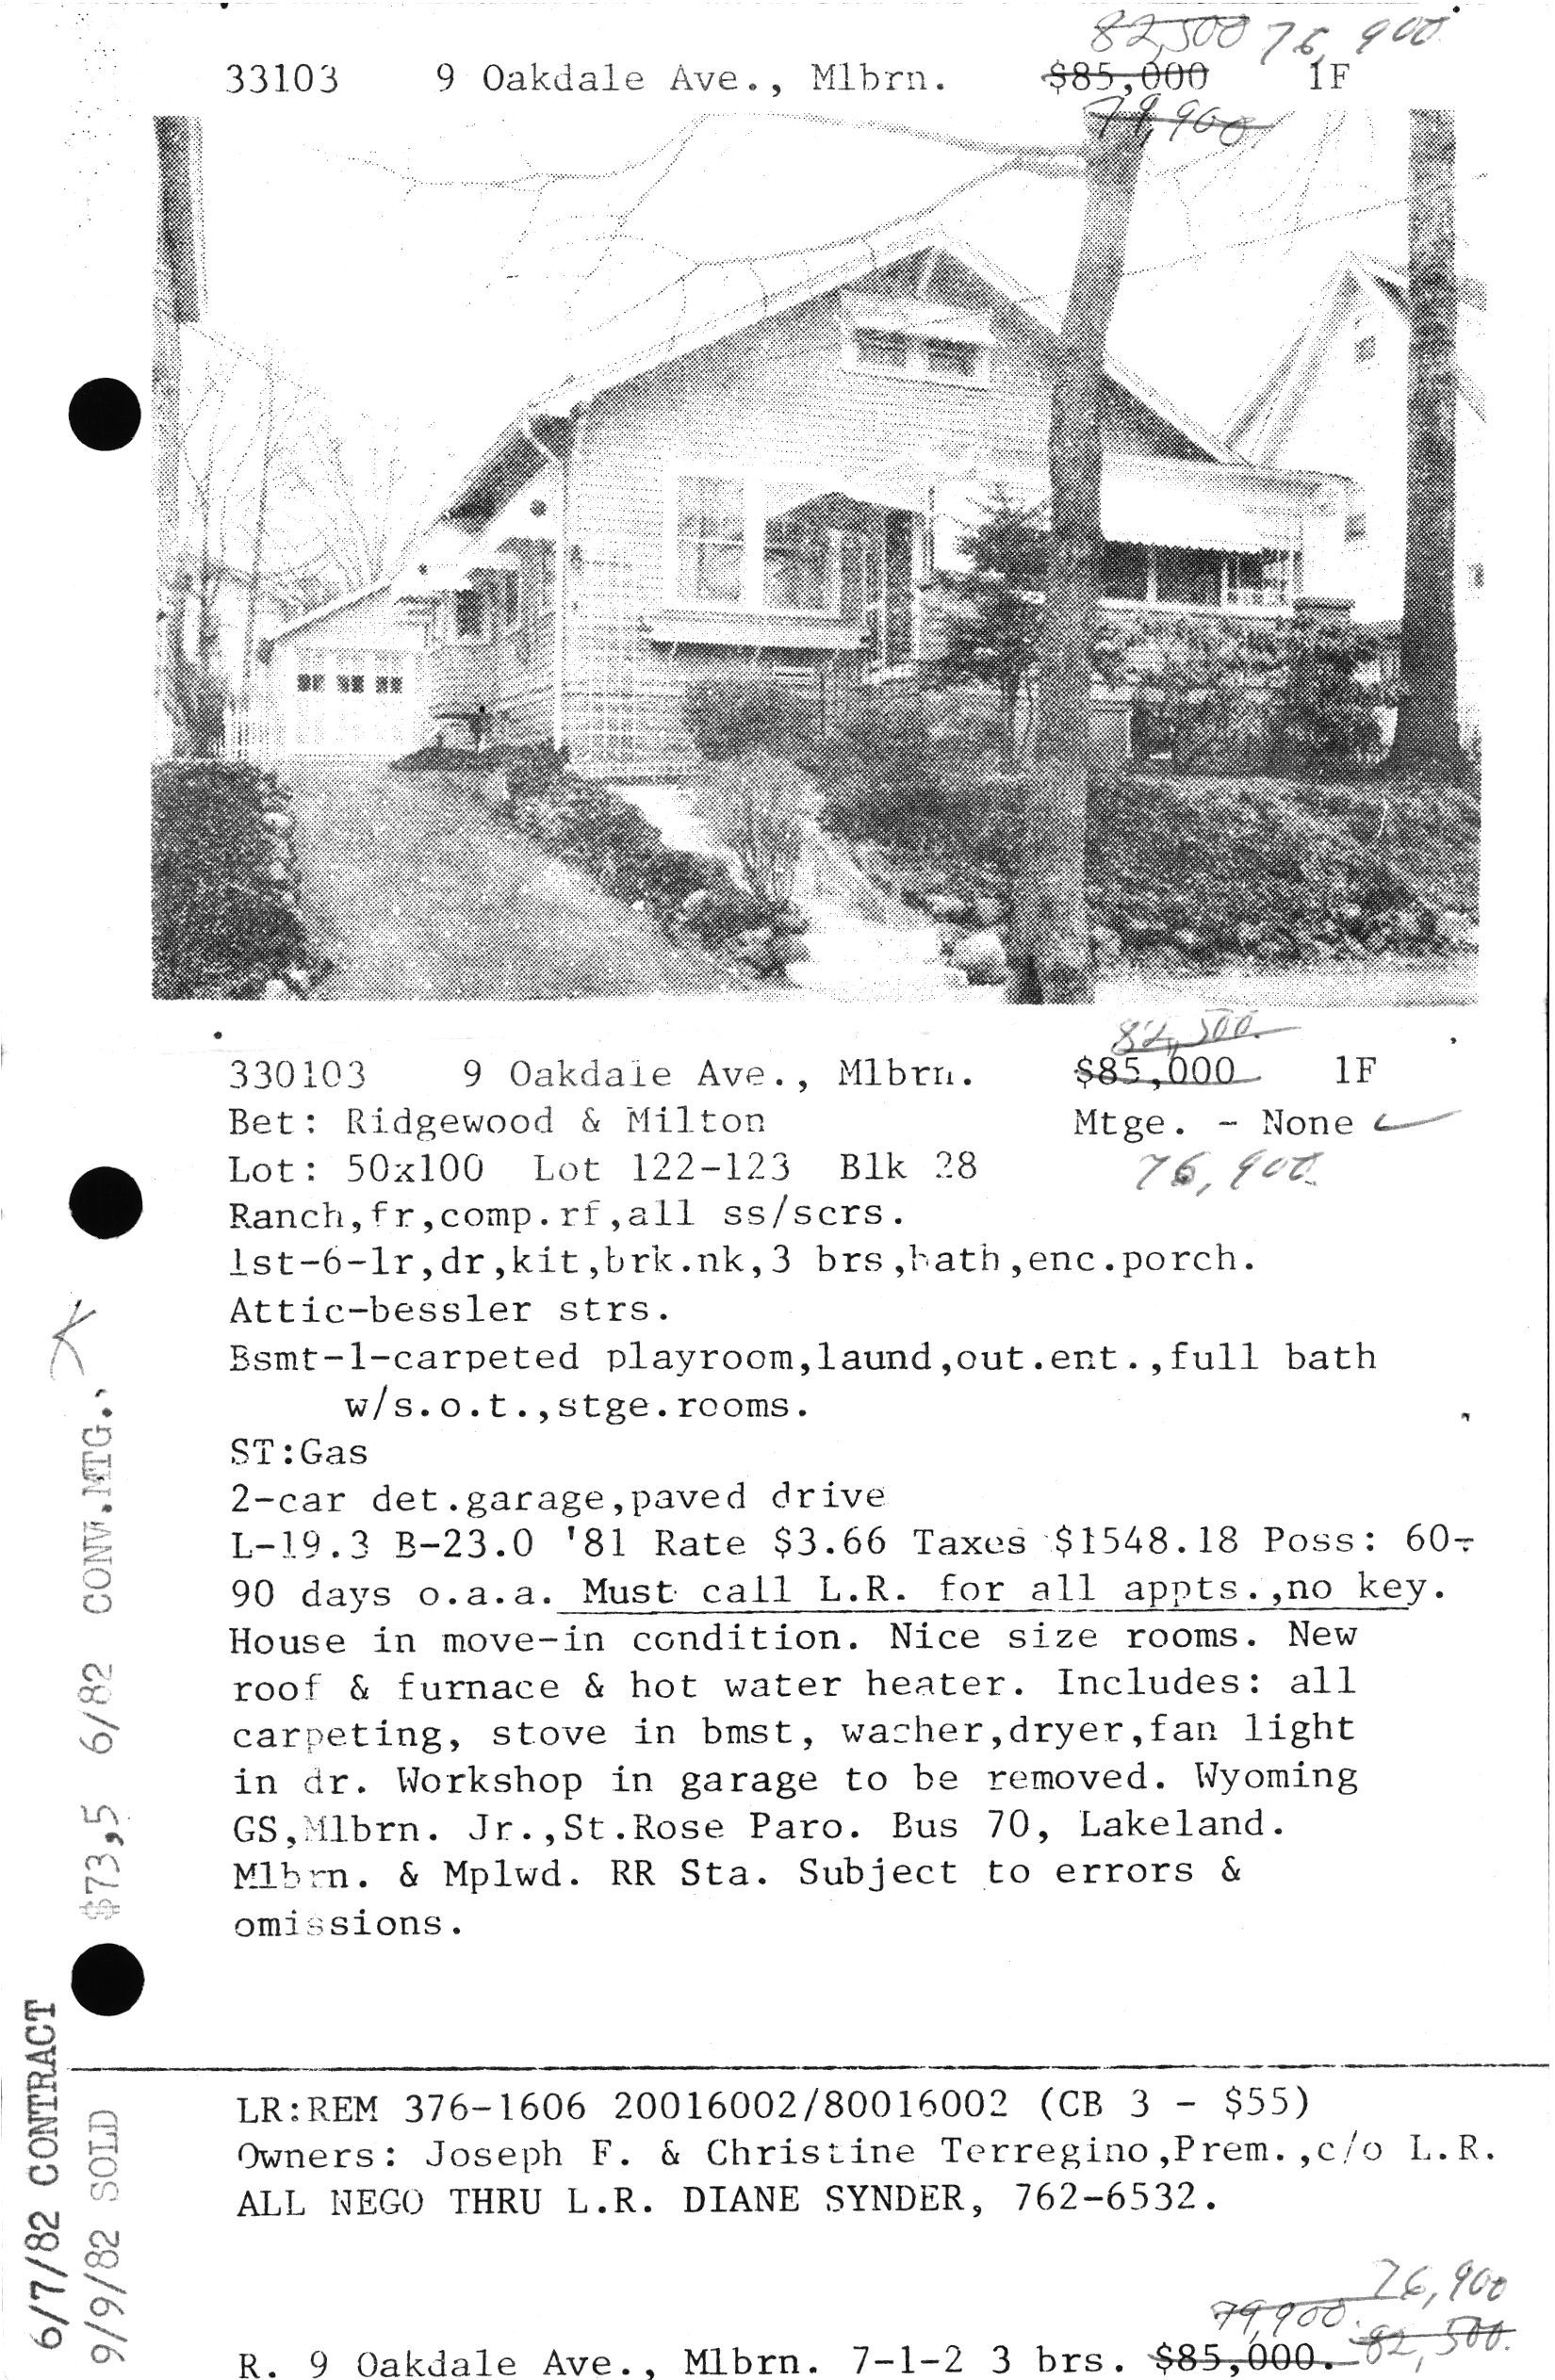 82,500 76,900.
33103 9 Oakdale Ave., Mlbrn. $85,000 1F
79,900.
82,500.
330103 9 Oakdale Ave., Mlbrn. $85,000 1F
Bet: Ridgewood & Milton Mtge. - None
Lot: 50x100 Lot 122-123 Blk 28 76,900.
Ranch,fr,comp.rf,all ss/scrs.
1st-6-lr,dr,kit,brk.nk,3 brs,bath,enc.porch.
Attic-bessler strs.
Bsmt-1-carpeted playroom,laund,out.ent.,full bath
w/s.o.t.,stge.rooms.
ST:Gas
2-car det.garage,paved drive
L-19.3 B-23.0 '81 Rate $3.66 Taxes $1548.18 Poss: 60-
90 days o.a.a. Must call L.R. for all appts.,no key.
House in move-in condition. Nice size rooms. New
roof & furnace & hot water heater. Includes: all
carpeting, stove in bmst, washer,dryer,fan light
in dr. Workshop in garage to be removed. Wyoming
GS,Mlbrn. Jr.,St.Rose Paro. Bus 70, Lakeland.
Mlbrn. & Mplwd. RR Sta. Subject to errors &
omissions.
6/7/82 CONTRACT
9/9/82 SOLD $73,5 6/82 CONV.MTG.
LR:REM 376-1606 20016002/80016002 (CB 3 - $55)
Owners: Joseph F. & Christine Terregino,Prem.,c/o L.R.
ALL NEGO THRU L.R. DIANE SYNDER, 762-6532.
76,900
79,900.
R. 9 Oakdale Ave., Mlbrn. 7-1-2 3 brs. $85,000. 82,500.